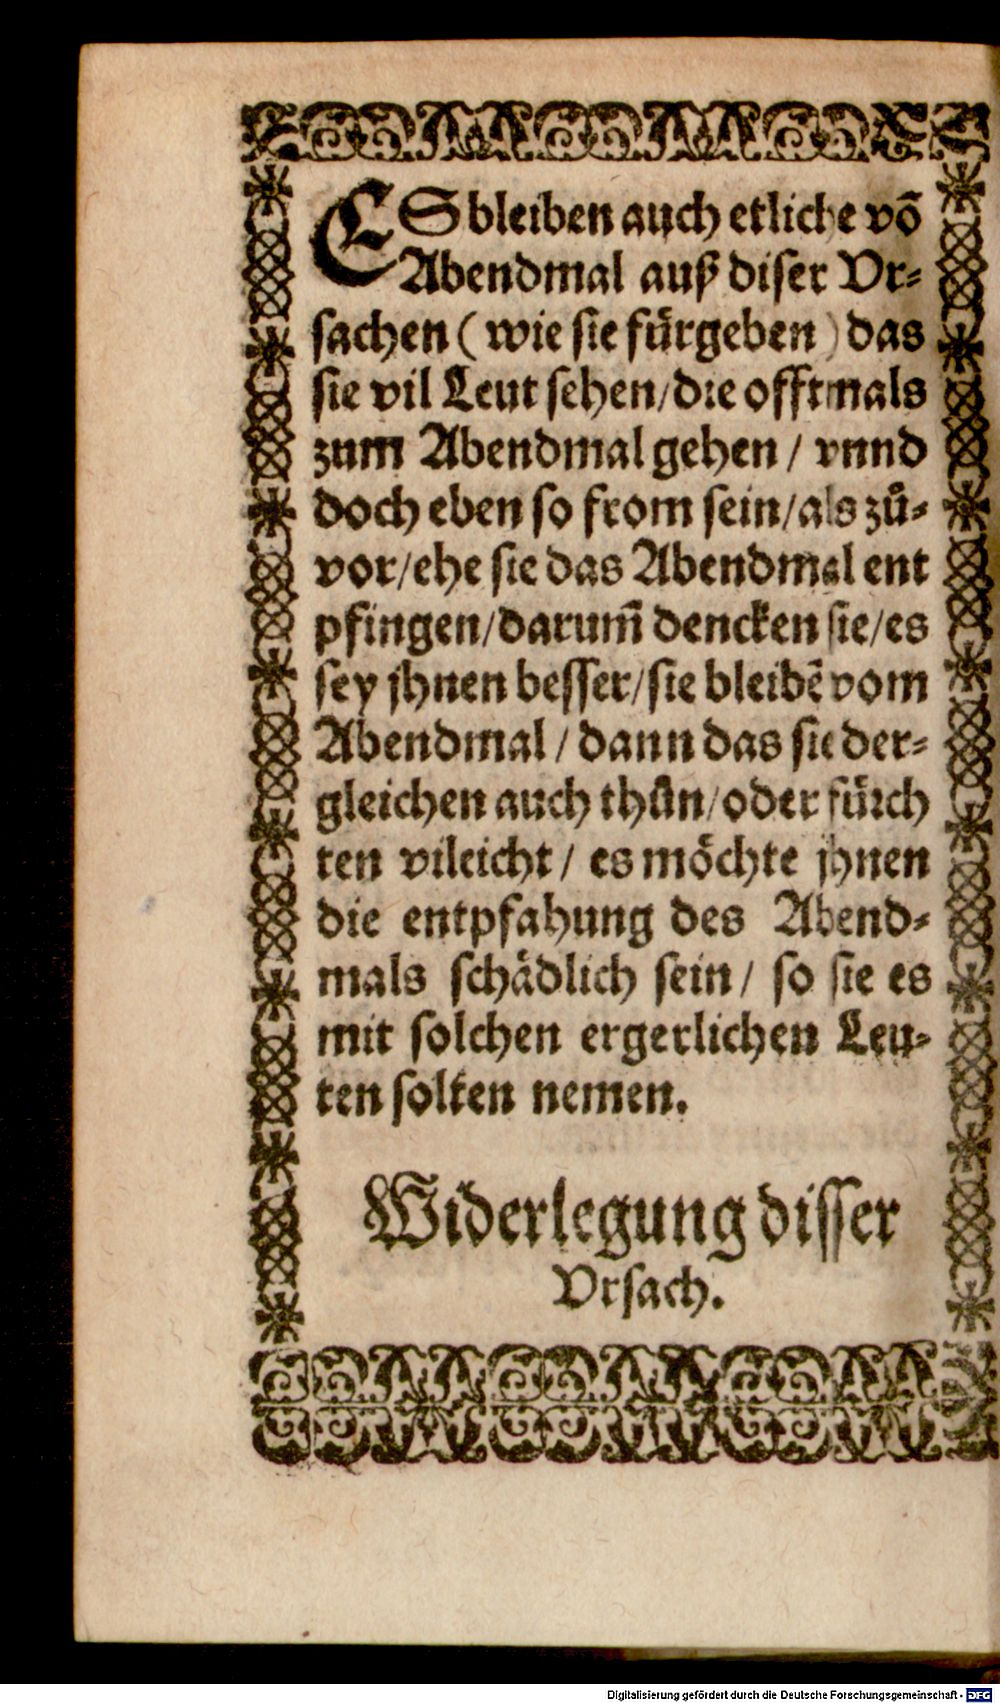 ES bleiben auch etliche võ
Abendmal auß diser Vr⸗
sachen (wie sie fürgeben) das
sie vil Leut sehen/die offtmals
zum Abendmal gehen / vnnd
doch eben so from sein/als zů⸗
vor/ehe sie das Abendmal ent
pfingen/darum̃ dencken sie/es
sey jhnen besser/sie bleibẽ vom
Abendmal / dann das sie der⸗
gleichen auch thůn/oder fürch
ten vileicht / es möchte jhnen
die entpfahung des Abend⸗
mals schädlich sein / so sie es
mit solchen ergerlichen Leu⸗
ten solten nemen.
Widerlegung disser
Vrsach.
Digitalisierung gefördert durch die Deutsche Forschungsgemeinschaft - DFG